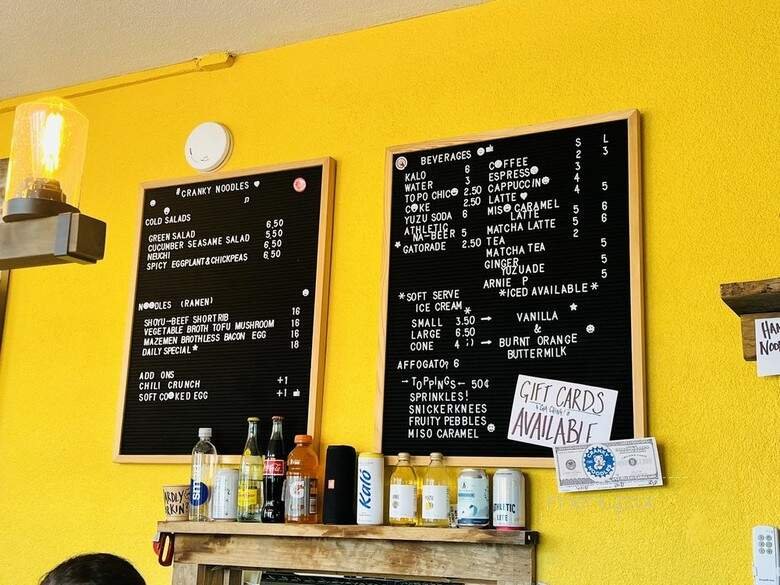 #CRANKY NOODLES
COLD SALADS
GREEN SALAD 6.50
CUCUMBER SEASAME SALAD 5.50
NEIICHI 6.50
SPICY EGGPLANT & CHICKPEAS 6.50
NOODLES (RAMEN)
SHOYU-BEEF SHORTRIB 16
VEGETABLE BROTH TOFU MUSHROOM 16
MAZEMEN BROTHLESS BACON EGG 16
DAILY SPECIAL* 18
ADD ONS
CHILI CRUNCH +1
SOFT COOKED EGG +1
BEVERAGES
KALO 6
WATER 3
TOPO CHICO 2.50
COKE 2.50
YUZU SODA 6
ATHLETIC
NA-BEER 5
*GATORADE 2.50
S L
COFFEE 2 3
ESPRESSO 3
CAPPUCCINO 4
LATTE 4 5
MISO CARAMEL
LATTE 5 6
MATCHA LATTE 5 6
TEA 2
MATCHA TEA 5
GINGER
YUZUADE 5
ARNIE P 5
*ICED AVAILABLE*
*SOFT SERVE
ICE CREAM*
SMALL 3.50 →
LARGE 6.50
CONE 4 :) →
VANILLA
&
BURNT ORANGE
BUTTERMILK
AFFOGATO? 6
→ TOPPINGS- 50¢
SPRINKLES!
SNICKERKNEES
FRUITY PEBBLES
MISO CARAMEL
GIFT CARDS
AVAILABLE
CRANKY
NOODLES
Kalo
Coca-Cola
JBL
ATHLETIC
LITE